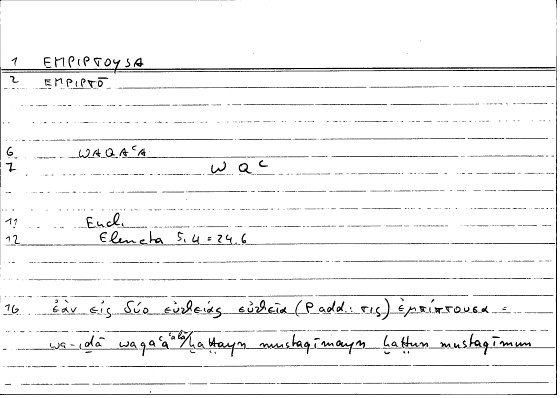 1 EMPIPTOUSA
2 EMPIPTŌ
6 WAQAʿA
7 WQʿ
11 Eucl.
12 Elementa 5.4 = 24.6
16 ἐὰν εἰς δύο εὐθείας εὐθεῖα (P add.: τις) ἐμπίπτουσα =
wa-iḏā waqaʿa ʿalā ḫaṭṭayn mustaqīmayn ḫaṭṭun mustaqīmun